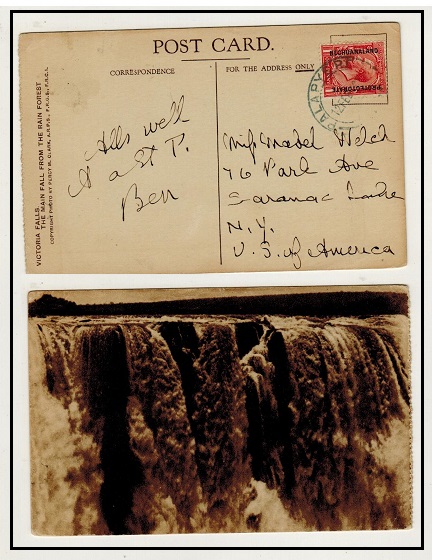 POST CARD.
CORRESPONDENCE
FOR THE ADDRESS ONLY
VICTORIA FALLS.
THE MAIN FALL FROM THE RAIN FOREST
COPYRIGHT PHOTO BY PERCY M. CLARK, A.R.P.S., F.R.G.S., F.R.C.I.
BECHUANALAND
PROTECTORATE
PALAPYE
Alls well
Ben
Miss Madel Welch
76 Park Ave
Saranac Lake
N.Y.
U.S. of America